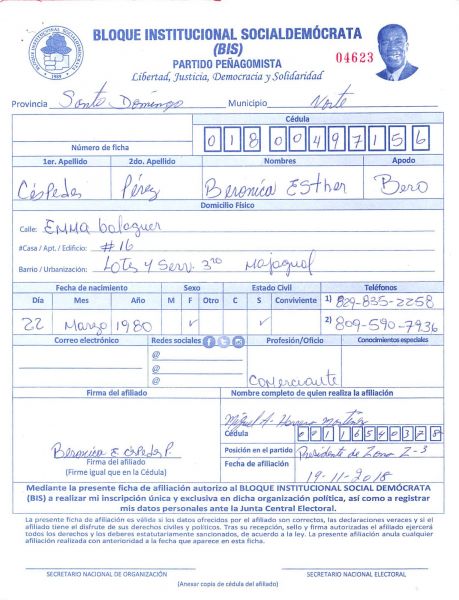 BLOQUE INSTITUCIONAL SOCIALDEMÓCRATA
(BIS)
PARTIDO PEÑAGOMISTA
Libertad, Justicia, Democracia y Solidaridad
04623
BLOQUE INSTITUCIONAL SOCIALDEMOCRATA
1989
Provincia Santo Domingo Municipio Norte
Número de ficha
Cédula
018 0049715 6
1er. Apellido 2do. Apellido Nombres Apodo
Céspedes Pérez Beronica Esther Bero
Domicilio Físico
Calle: Emma balaguer
#Casa / Apt. / Edificio: #16
Barrio / Urbanización: Lotes y Serv. 3ro Majagual
Fecha de nacimiento Sexo Estado Civil Teléfonos
Día Mes Año M F Otro C S Conviviente 1) 829-835-2258
22 Marzo 1980 ✓ ✓ 2) 809-590-7936
Correo electrónico Redes sociales Profesión/Oficio Conocimientos especiales
@
@
@
Comerciante
Firma del afiliado Nombre completo de quien realiza la afiliación
Miguel A.
Cédula 00116540378
Beronica E Céspedes P.
Firma del afiliado
(Firme igual que en la Cédula)
Posición en el partido Presidente de Zona Z-3
Fecha de afiliación 19-11-2018
Mediante la presente ficha de afiliación autorizo al BLOQUE INSTITUCIONAL SOCIAL DEMÓCRATA
(BIS) a realizar mi inscripción única y exclusiva en dicha organización política, así como a registrar
mis datos personales ante la Junta Central Electoral.
La presente ficha de afiliación es válida si los datos ofrecidos por el afiliado son correctos, las declaraciones veraces y si el
afiliado tiene el disfrute de sus derechos civiles y políticos. Tras su recepción, sello y firma autorizada el afiliado ejercerá
todos los derechos y los deberes estatutariamente sancionados, de acuerdo a la ley. La presente afiliación anula cualquier
afiliación realizada con anterioridad a la fecha que aparece en esta ficha.
SECRETARIO NACIONAL DE ORGANIZACIÓN SECRETARIO NACIONAL ELECTORAL
(Anexar copia de cédula del afiliado)